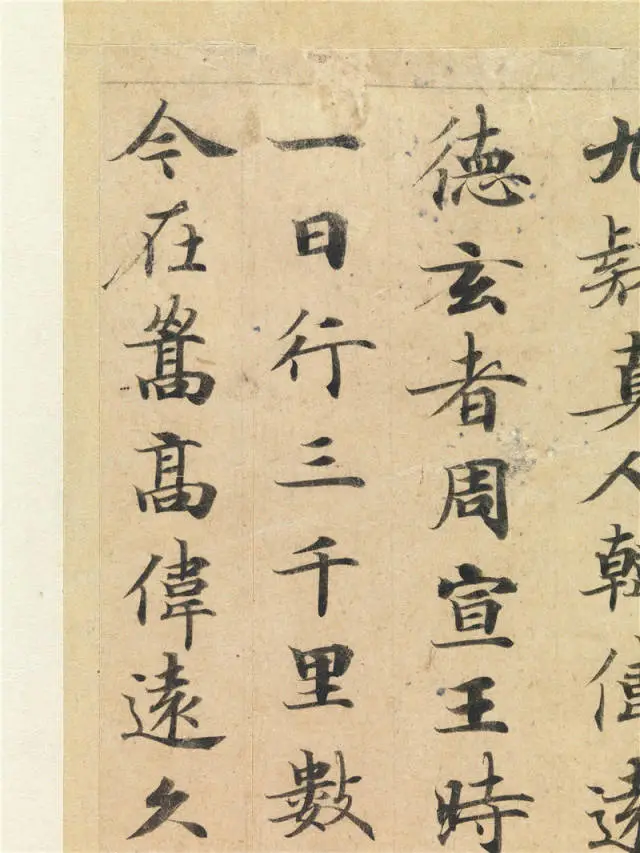 九真人韓偉遠
德玄者周宣王時
一日行三千里數
今在嵩高偉遠久